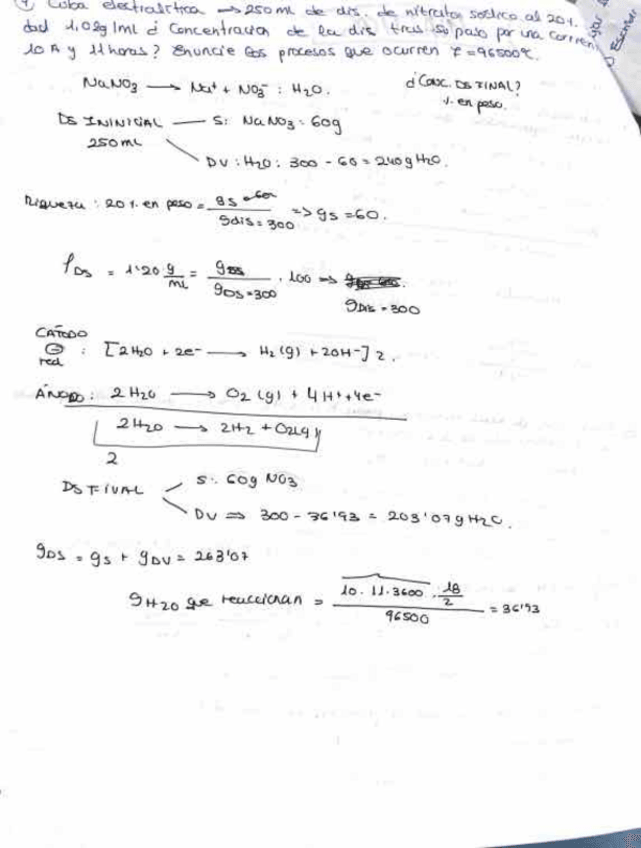 ④ Cuba electralítica → 250 mL de dis. de nitrato sódico al 20%.
dad 1,02g/mL ¿ Concentración de la dis tras su paso por una corrien
10 A y 11 horas? Enuncie los procesos que ocurren F = 96500C.
NaNO3 → Na+ + NO3- : H2O.
¿Conc. DS FINAL?
% en peso.
DS ININICIAL — S: NaNO3: 60g
250mL
DV: H2O: 300 - 60 = 240g H2O.
Riqueza: 20% en peso = gs / gdis = 300 => gs = 60.
ρDS = 1'20 g/mL = gDS / gDS = 300 . 100 =>
gDis = 300
CÁTODO
⊖ : [2H2O + 2e- → H2(g) + 2OH-] 2.
red
ÁNODO: 2H2O → O2(g) + 4H+ + 4e-
2H2O → 2H2 + O2(g)
2
DS FINAL S: 60g NO3
DV => 300 - 36'93 = 203'07g H2O.
gDS = gs + gDV = 263'07
gH2O que reaccionan = 10 . 11 . 3600 . 18/2 / 96500 = 36'93